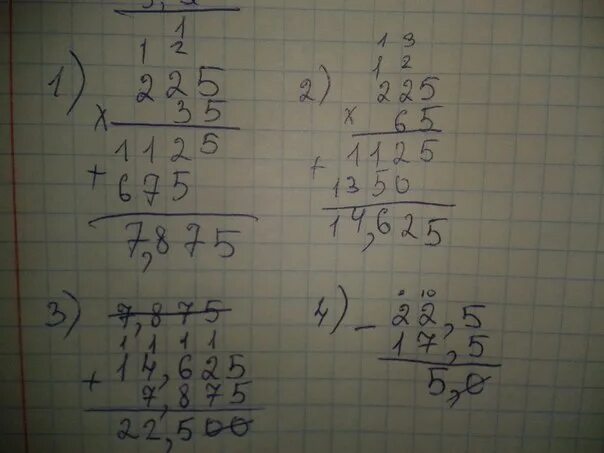 1)
1
1 2
225
× 35
1125
+ 675
7,875
2)
1 3
1 2
225
× 65
1125
+ 1350
14,625
3)
7,875
1 1 1 1
14,625
+ 7,875
22,500
4)
10
- 22,5
17,5
5,0